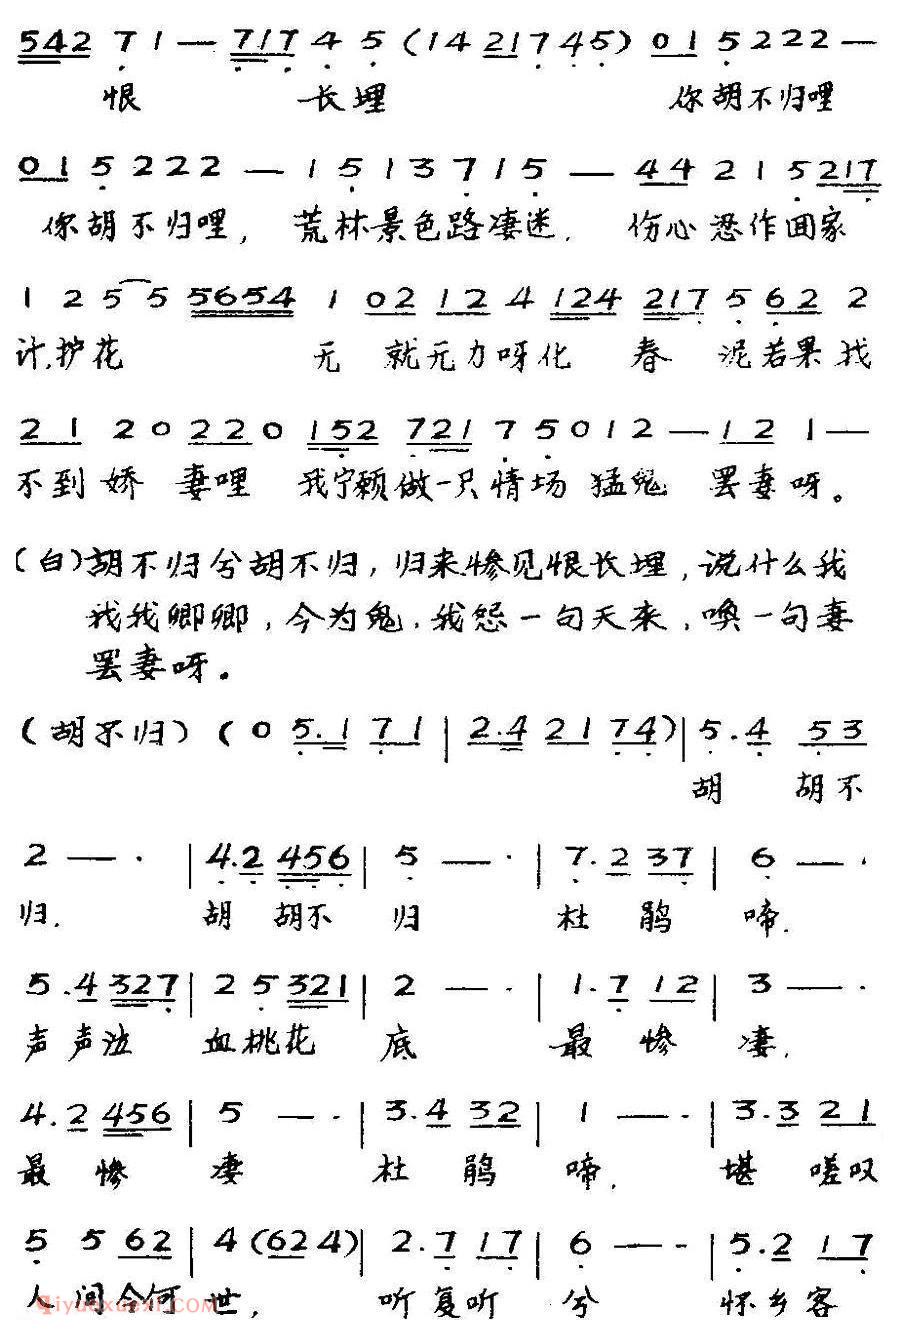 542 7 1 — 717 4 5 (14 21745) 01 5222—
恨 长埋 你胡不归哩
01 5222 — 1513715 — 44 21 5217
你胡不归哩, 荒林景色路凄迷. 伤心恐作回家
1 2 5 5 5654 1 02 12 4 124 217 5 62 2
计,护花 无 就无力呀化 春 泥若果我
21 20 220 152 721 75012— 12 1—
不到娇 妻哩 我宁愿做一只情场 猛鬼 罢妻呀。
(白)胡不归兮胡不归,归来惨见恨长埋,说什么我
我我卿卿,今为鬼.我怨一句天来,唤一句妻
罢妻呀。
(胡不归) (0 5.1 71 | 2.4 21 74) | 5.4 53
胡 胡不
2 — · | 4.2 456 | 5 — · | 7.2 37 | 6 — ·
归. 胡 胡不 归 杜 鹃 啼.
5.4 327 | 2 5 321 | 2 — · | 1.7 12 | 3 — ·
声声泣 血桃花 底 最 惨 凄.
4.2 456 | 5 — · | 3.4 32 | 1 — · | 3.3 21
最 惨 凄 杜 鹃 啼. 堪 嗟叹
5 5 62 | 4 (624) | 2.7 17 | 6 — · | 5.2 17
人间今何 世, 听复听 兮 怀乡客